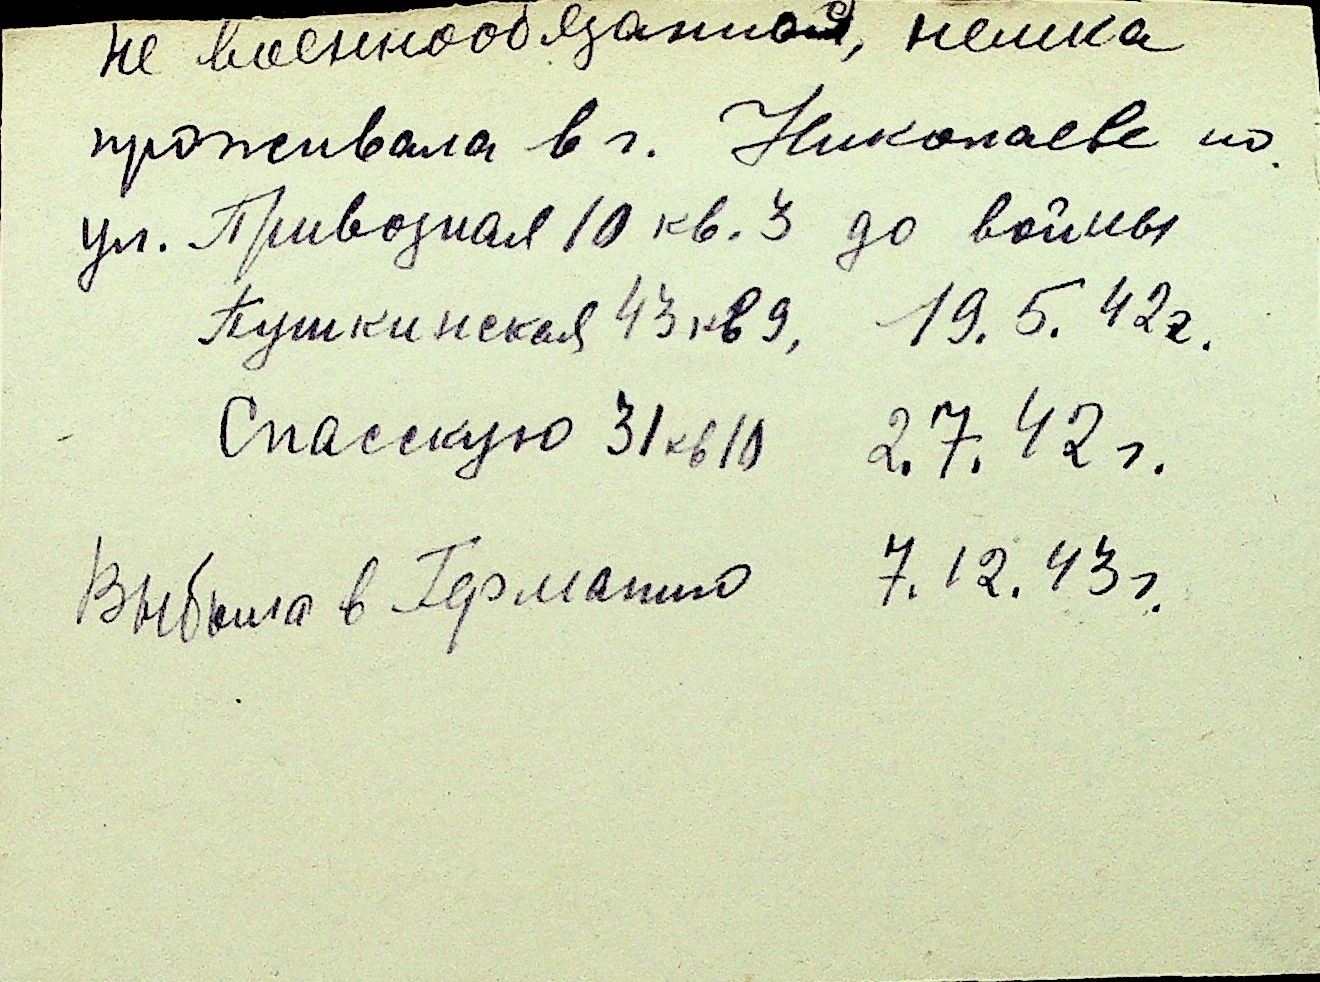 не военнообязанная, немка
проживала в г. Николаеве по
ул. Привозная 10 кв. 3 до войны
Пушкинская 43 кв 9, 19. 5. 42 г.
Спасскую 31 кв 10 2. 7. 42 г.
Выбыла в Германию 7. 12. 43 г.